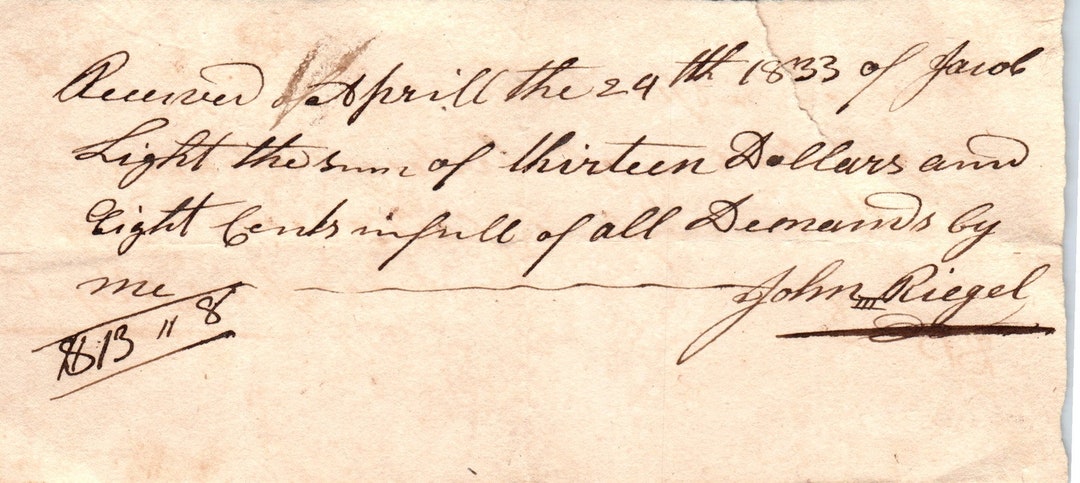 Received Aprill the 24th 1833 of Jacob
Light the sum of thirteen Dollars and
Eight Cents in full of all Demands by
me
John III Riegel
$13 " 8